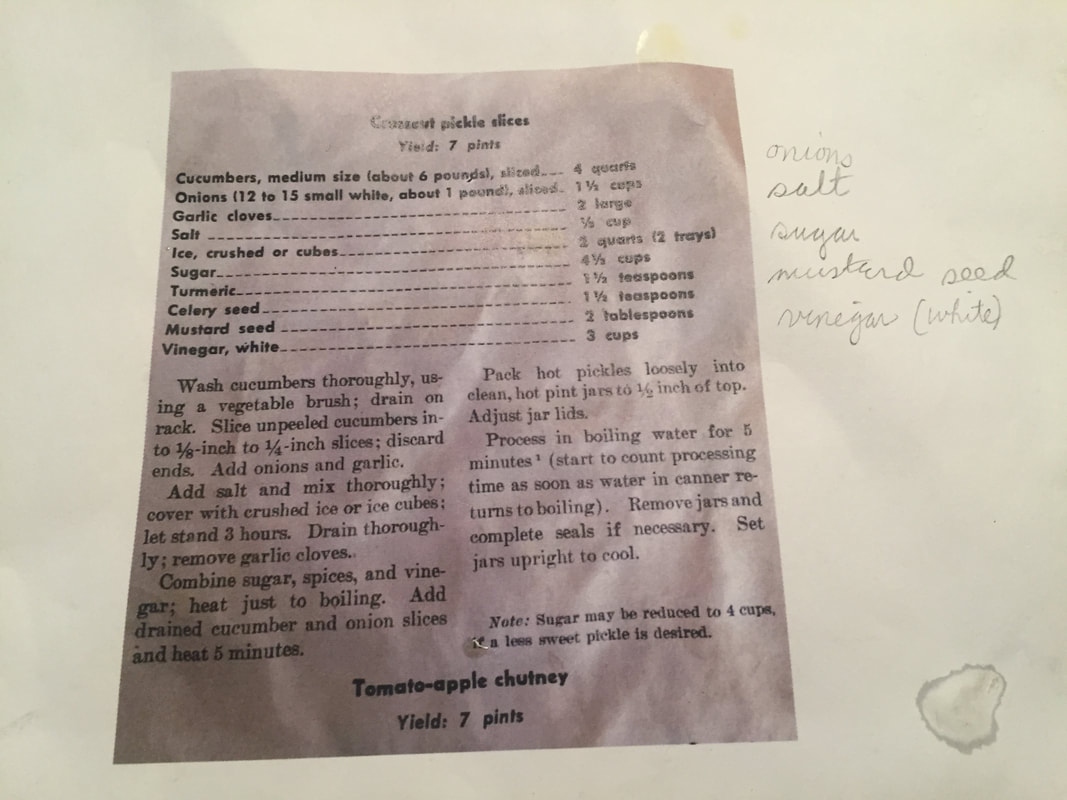 Crosscut pickle slices
Yield: 7 pints
Cucumbers, medium size (about 6 pounds), sliced 4 quarts
Onions (12 to 15 small white, about 1 pound), sliced 1½ cups
Garlic cloves 2 large
Salt ½ cup
Ice, crushed or cubes 2 quarts (2 trays)
Sugar 4½ cups
Turmeric 1½ teaspoons
Celery seed 1½ teaspoons
Mustard seed 2 tablespoons
Vinegar, white 3 cups
Wash cucumbers thoroughly, us-
ing a vegetable brush; drain on
rack. Slice unpeeled cucumbers in-
to ⅛-inch to ¼-inch slices; discard
ends. Add onions and garlic.
Add salt and mix thoroughly;
cover with crushed ice or ice cubes;
let stand 3 hours. Drain thorough-
ly; remove garlic cloves.
Combine sugar, spices, and vine-
gar; heat just to boiling. Add
drained cucumber and onion slices
and heat 5 minutes.
Pack hot pickles loosely into
clean, hot pint jars to ½ inch of top.
Adjust jar lids.
Process in boiling water for 5
minutes¹ (start to count processing
time as soon as water in canner re-
turns to boiling). Remove jars and
complete seals if necessary. Set
jars upright to cool.
Note: Sugar may be reduced to 4 cups,
if a less sweet pickle is desired.
Tomato-apple chutney
Yield: 7 pints
onions
salt
sugar
mustard seed
vinegar (white)